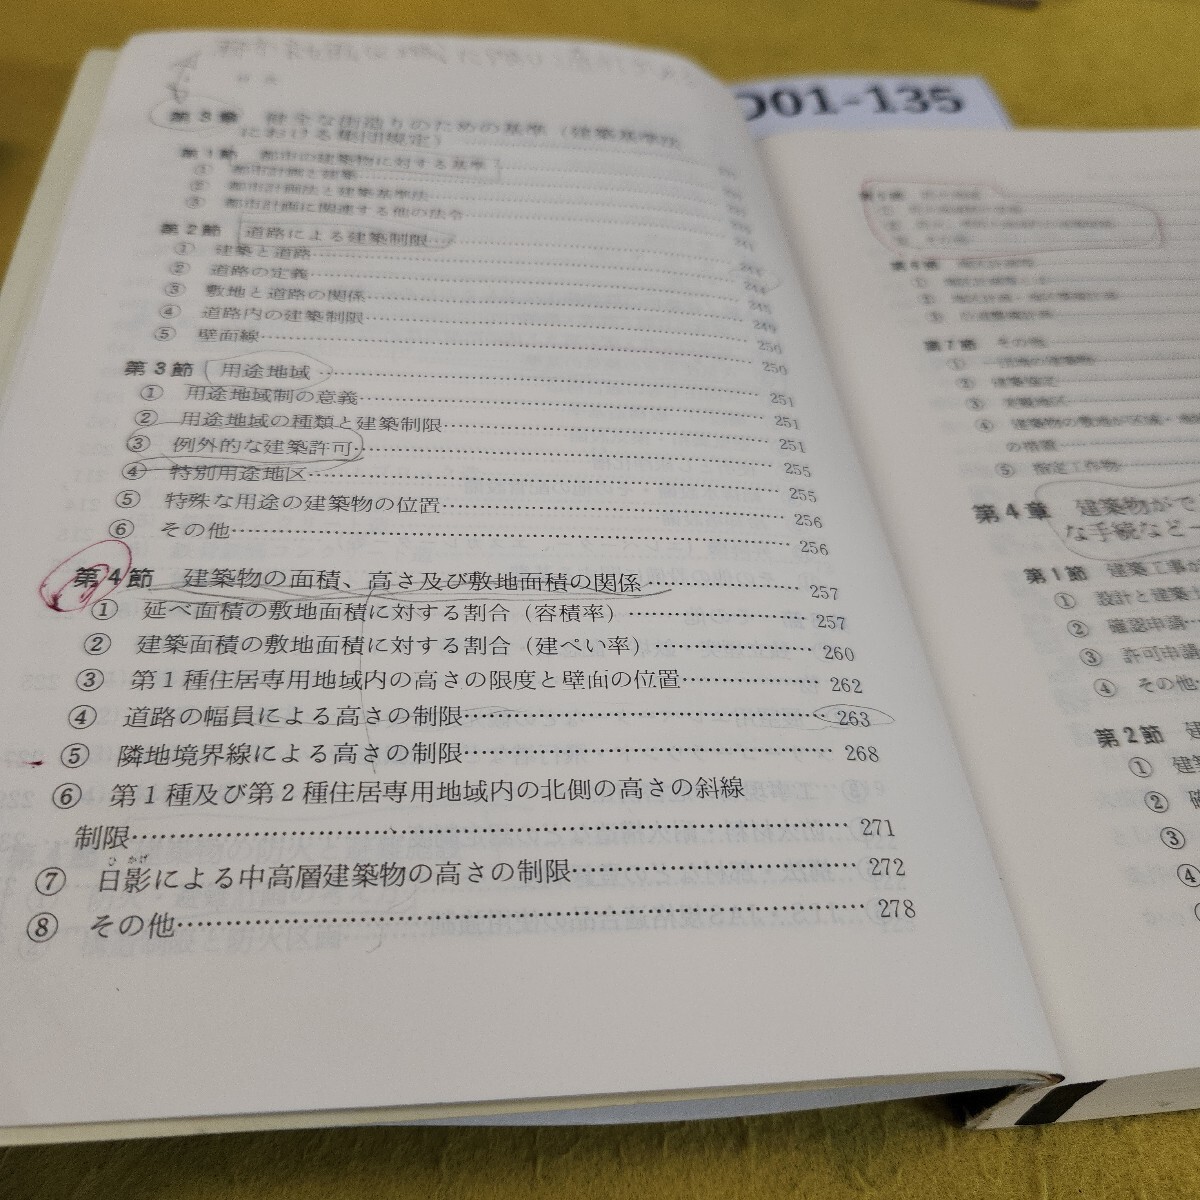 D01-135
第3章 健全な街造りのための基準（建築基準法
における集団規定）
第1節 都市の建築物に対する基準
① 都市計画と建築
② 都市計画法と建築基準法
③ 都市計画に関連する他の法令
第2節 道路による建築制限 241
① 建築と道路 244
② 道路の定義 244
③ 敷地と道路の関係 248
④ 道路内の建築制限 249
⑤ 壁面線 250
第3節 用途地域 251
① 用途地域制の意義 251
② 用途地域の種類と建築制限 251
③ 例外的な建築許可 255
④ 特別用途地区 255
⑤ 特殊な用途の建築物の位置 256
⑥ その他 256
第4節 建築物の面積、高さ及び敷地面積の関係 257
① 延べ面積の敷地面積に対する割合（容積率） 257
② 建築面積の敷地面積に対する割合（建ぺい率） 260
③ 第1種住居専用地域内の高さの限度と壁面の位置 262
④ 道路の幅員による高さの制限 263
⑤ 隣地境界線による高さの制限 268
⑥ 第1種及び第2種住居専用地域内の北側の高さの斜線
制限 271
ひ かげ
⑦ 日影による中高層建築物の高さの制限 272
⑧ その他 278
第7節 その他
② 建築協定
④ 建築物の敷地が区域・地
の措置
⑤ 指定工作物
第4章 建築物がで
な手続など
第1節 建築工事が
① 設計と建築士
② 確認申請
③ 許可申請
④ その他
第2節 建
① 建築
② 確
③
④